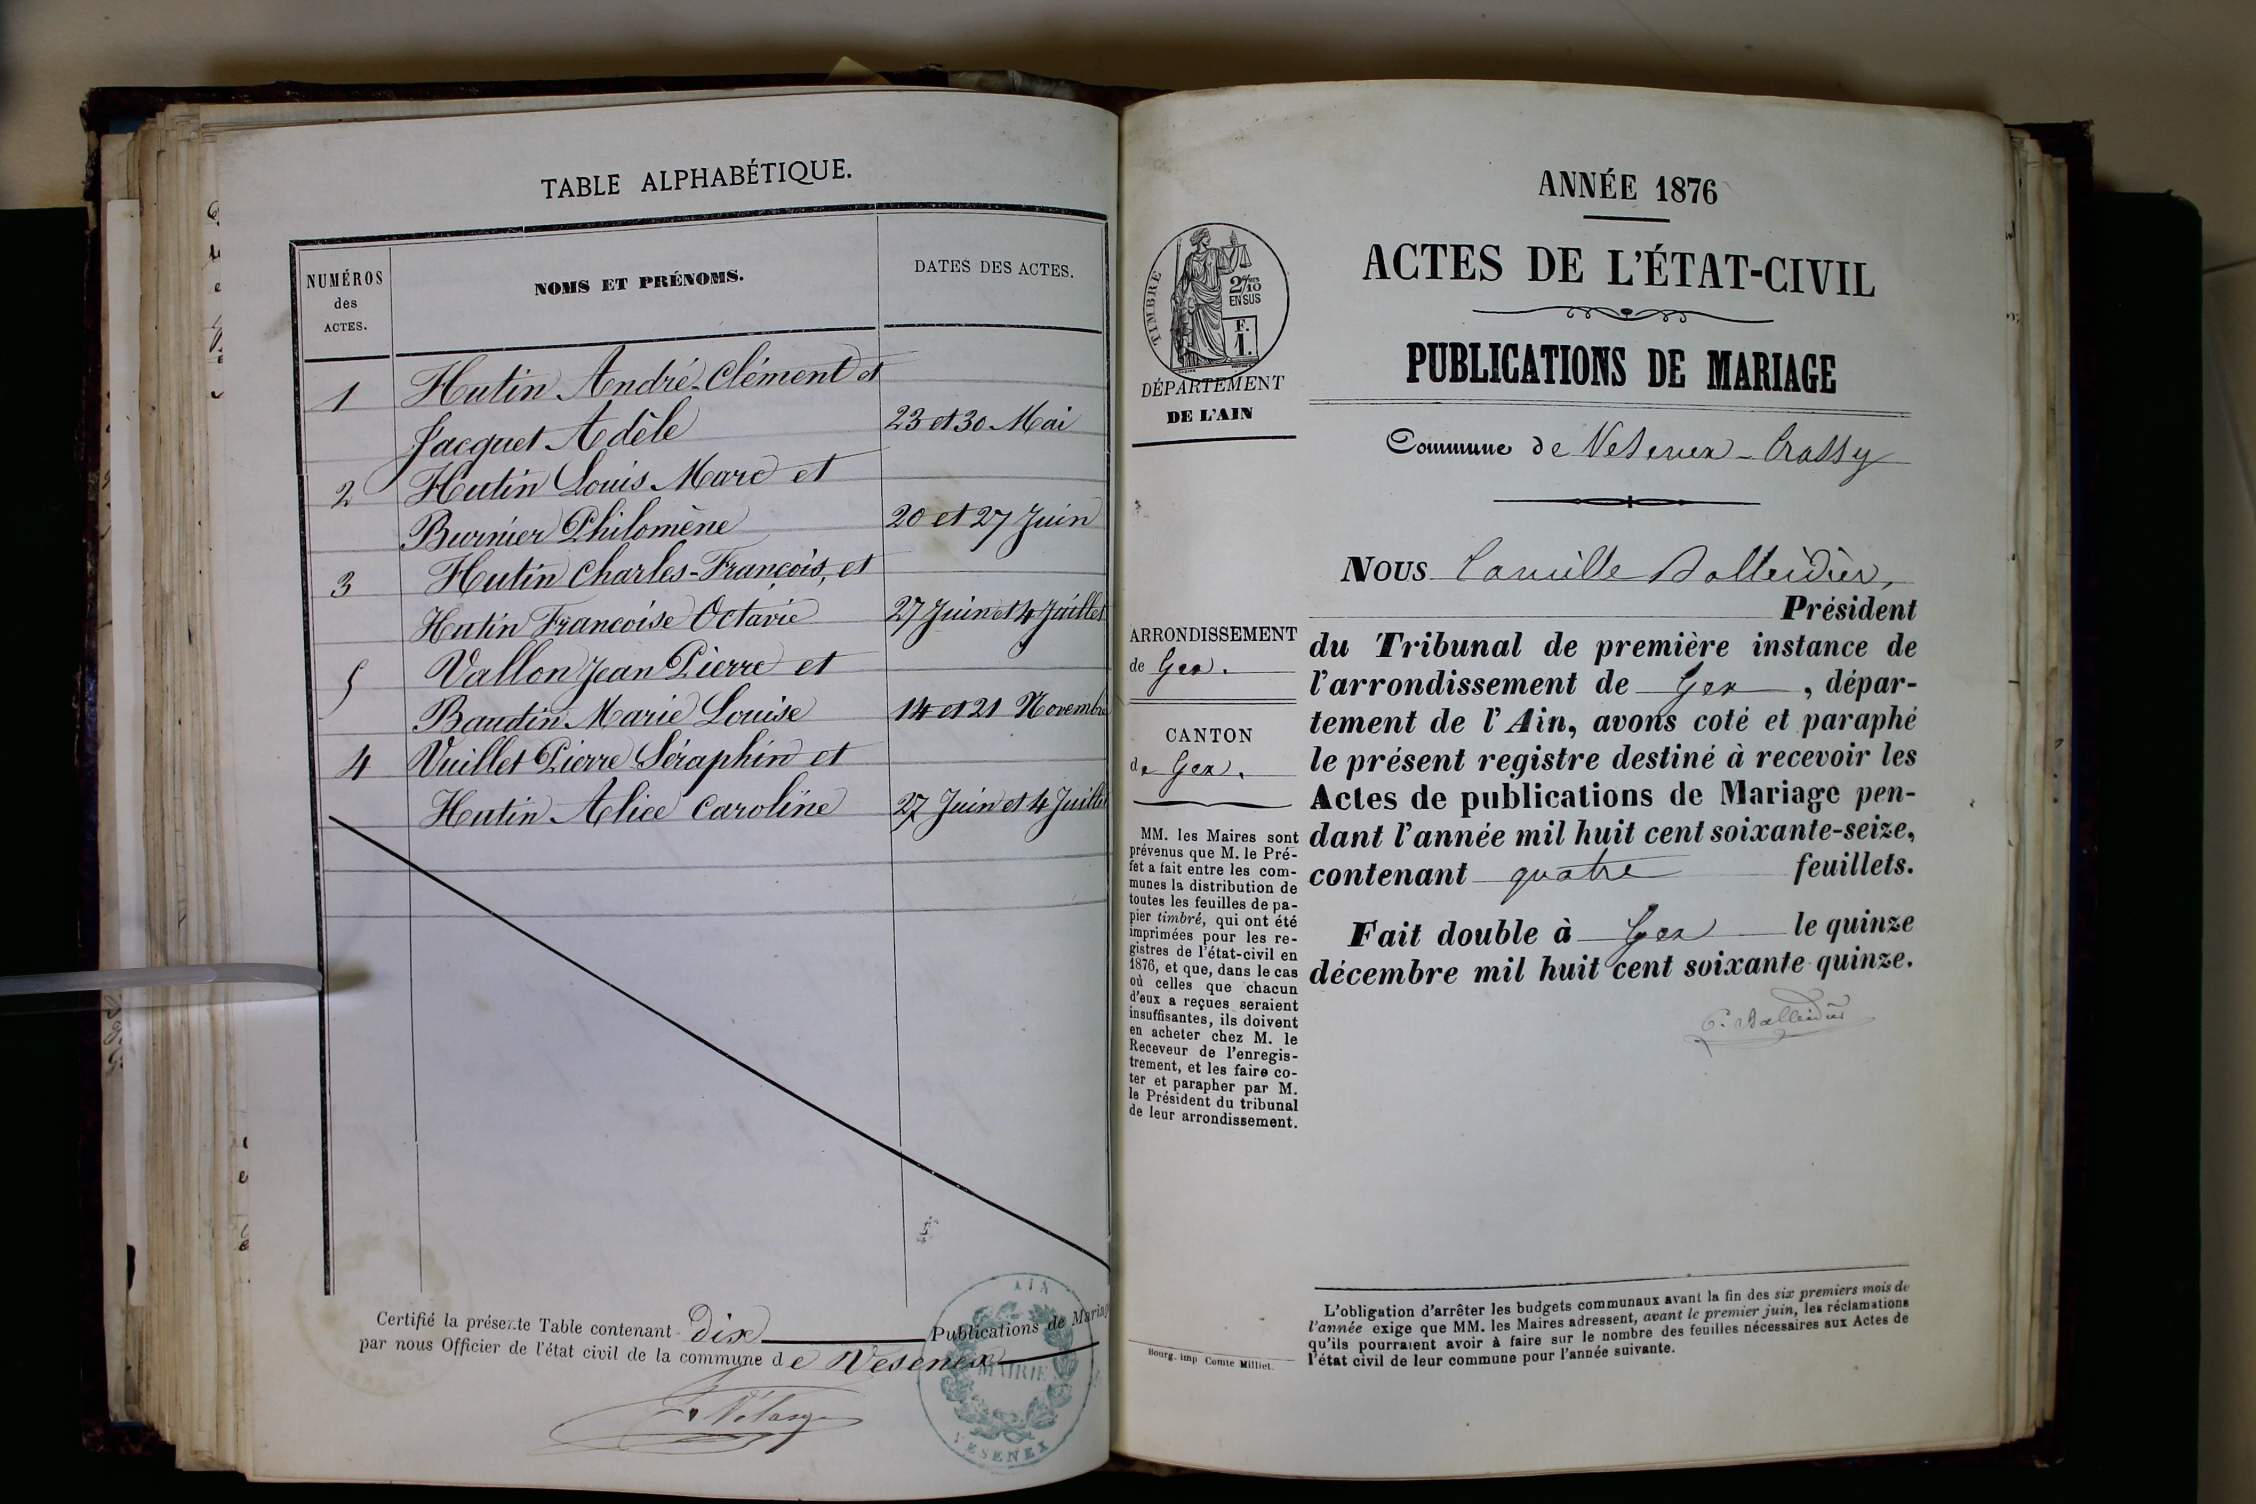 TABLE ALPHABÉTIQUE.
NUMÉROS
des
ACTES.
NOMS ET PRÉNOMS.
DATES DES ACTES.
1 Hutin André-Clément et
Jacquet Adèle 23 et 30 Mai
2 Hutin Louis Marc et
Burnier Philomène 20 et 27 Juin
3 Hutin Charles-François, et
Hutin Françoise Octavie 27 Juin et 4 Juillet
5 Vallon Jean Pierre et
Baudin Marie Louise 14 et 21 Novembre
4 Vuillet Pierre Séraphin et
Hutin Alice Caroline 27 Juin et 4 Juillet
Certifié la présente Table contenant Dix Publications de Mariag
par nous Officier de l'état civil de la commune de Vesenex
AIN
MAIRIE
VESENEX
ANNÉE 1876
ACTES DE L'ÉTAT-CIVIL
PUBLICATIONS DE MARIAGE
TIMBRE
2/10
EN SUS
F.
1.
DÉPARTEMENT
DE L'AIN
Commune de Vesenex-Crassy
Nous Camille Balleidier,
Président
du Tribunal de première instance de
l'arrondissement de Gex, dépar-
tement de l'Ain, avons coté et paraphé
le présent registre destiné à recevoir les
Actes de publications de Mariage pen-
dant l'année mil huit cent soixante-seize,
contenant quatre feuillets.
Fait double à Gex le quinze
décembre mil huit cent soixante quinze.
C. Balleidier
ARRONDISSEMENT
de Gex.
CANTON
de Gex.
MM. les Maires sont
prévenus que M. le Pré-
fet a fait entre les com-
munes la distribution de
toutes les feuilles de pa-
pier timbré, qui ont été
imprimées pour les re-
gistres de l'état-civil en
1876, et que, dans le cas
où celles que chacun
d'eux a reçues seraient
insuffisantes, ils doivent
en acheter chez M. le
Receveur de l'enregis-
trement, et les faire co-
ter et parapher par M.
le Président du tribunal
de leur arrondissement.
Bourg. imp Comte Milliet.
L'obligation d'arrêter les budgets communaux avant la fin des six premiers mois de
l'année exige que MM. les Maires adressent, avant le premier juin, les réclamations
qu'ils pourraient avoir à faire sur le nombre des feuilles nécessaires aux Actes de
l'état civil de leur commune pour l'année suivante.